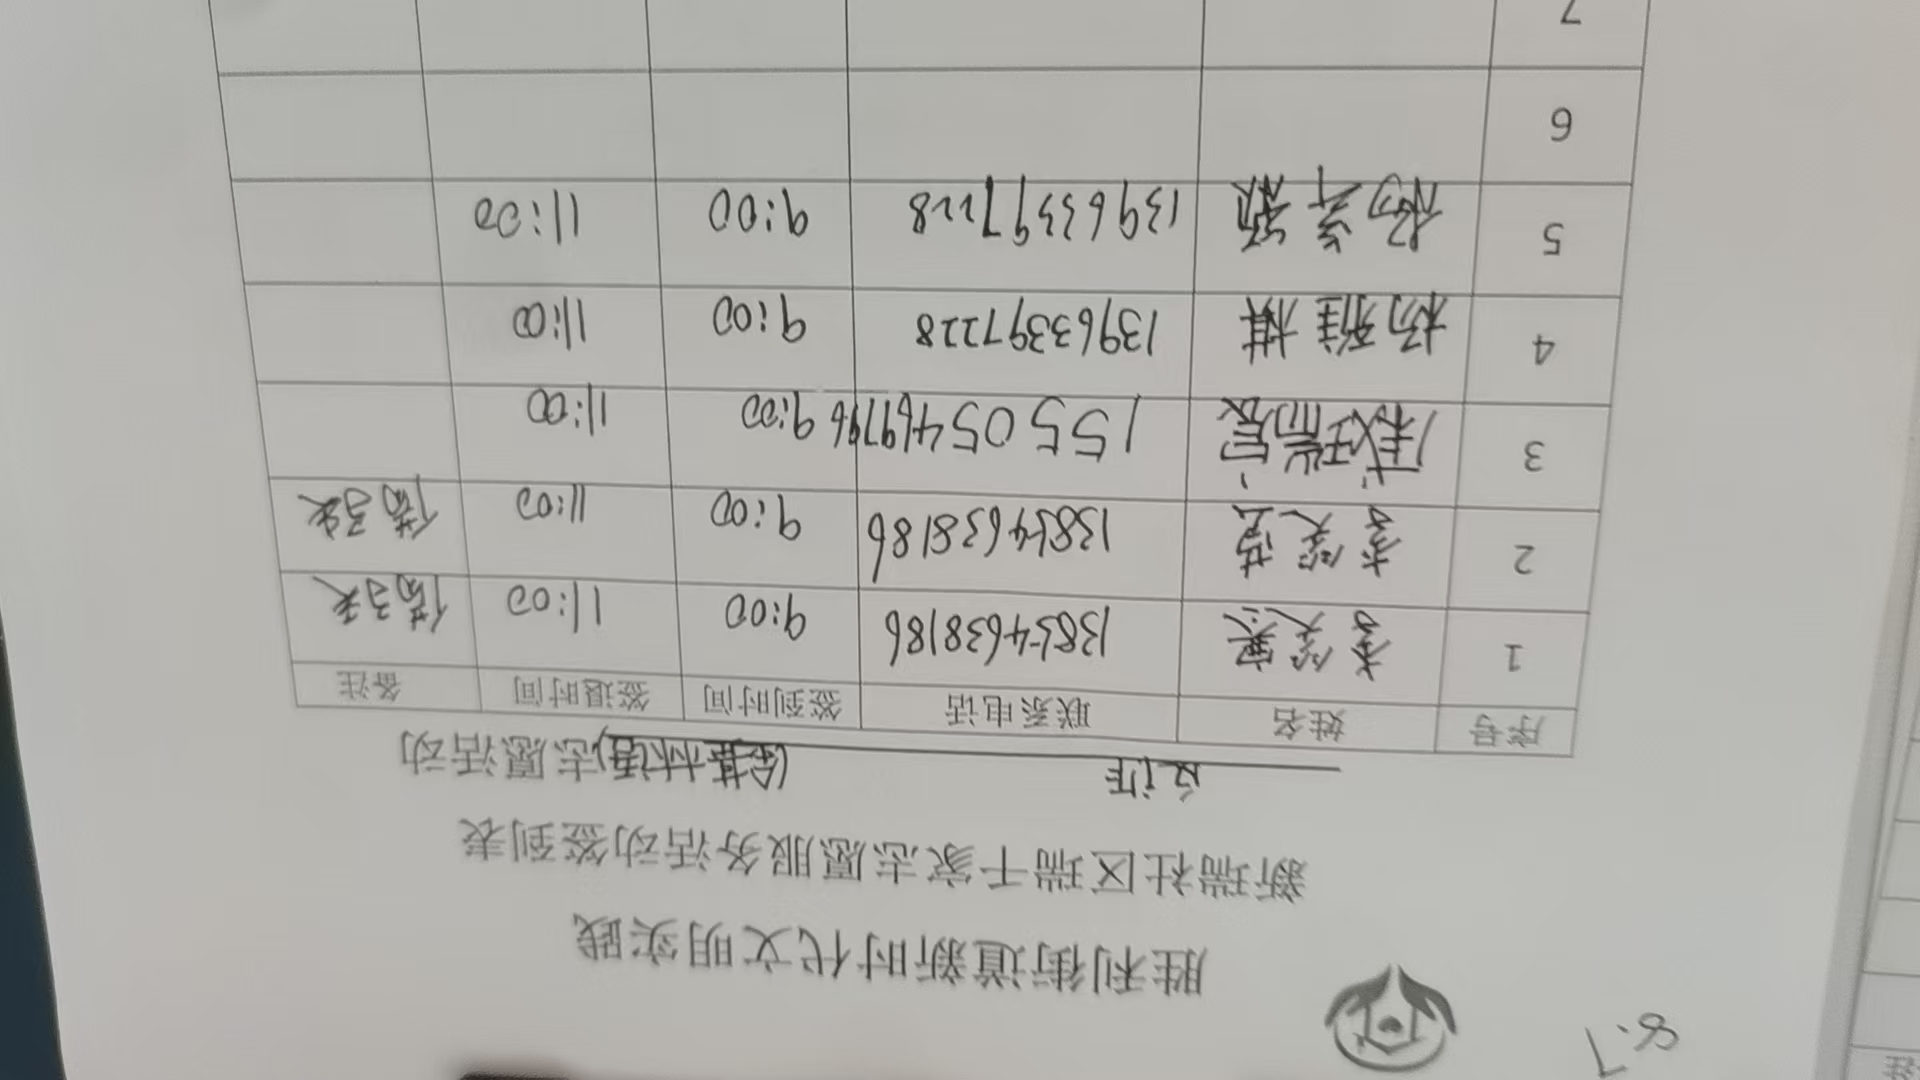 8.7
胜利街道新时代文明实践
新瑞社区瑞千家志愿服务活动签到表
反诈 (绿林语)志愿活动
序号 姓名 联系电话 签到时间 签退时间 备注
1 李笑寒 13854638186 9:00 11:00
2 李笑 13854638186 9:00 11:00
3 戚瑞宸 15505469796 9:00 11:00
4 杨雅棋 13963397228 9:00 11:00
5 杨 颖 13963397228 9:00 11:00
6
7
注